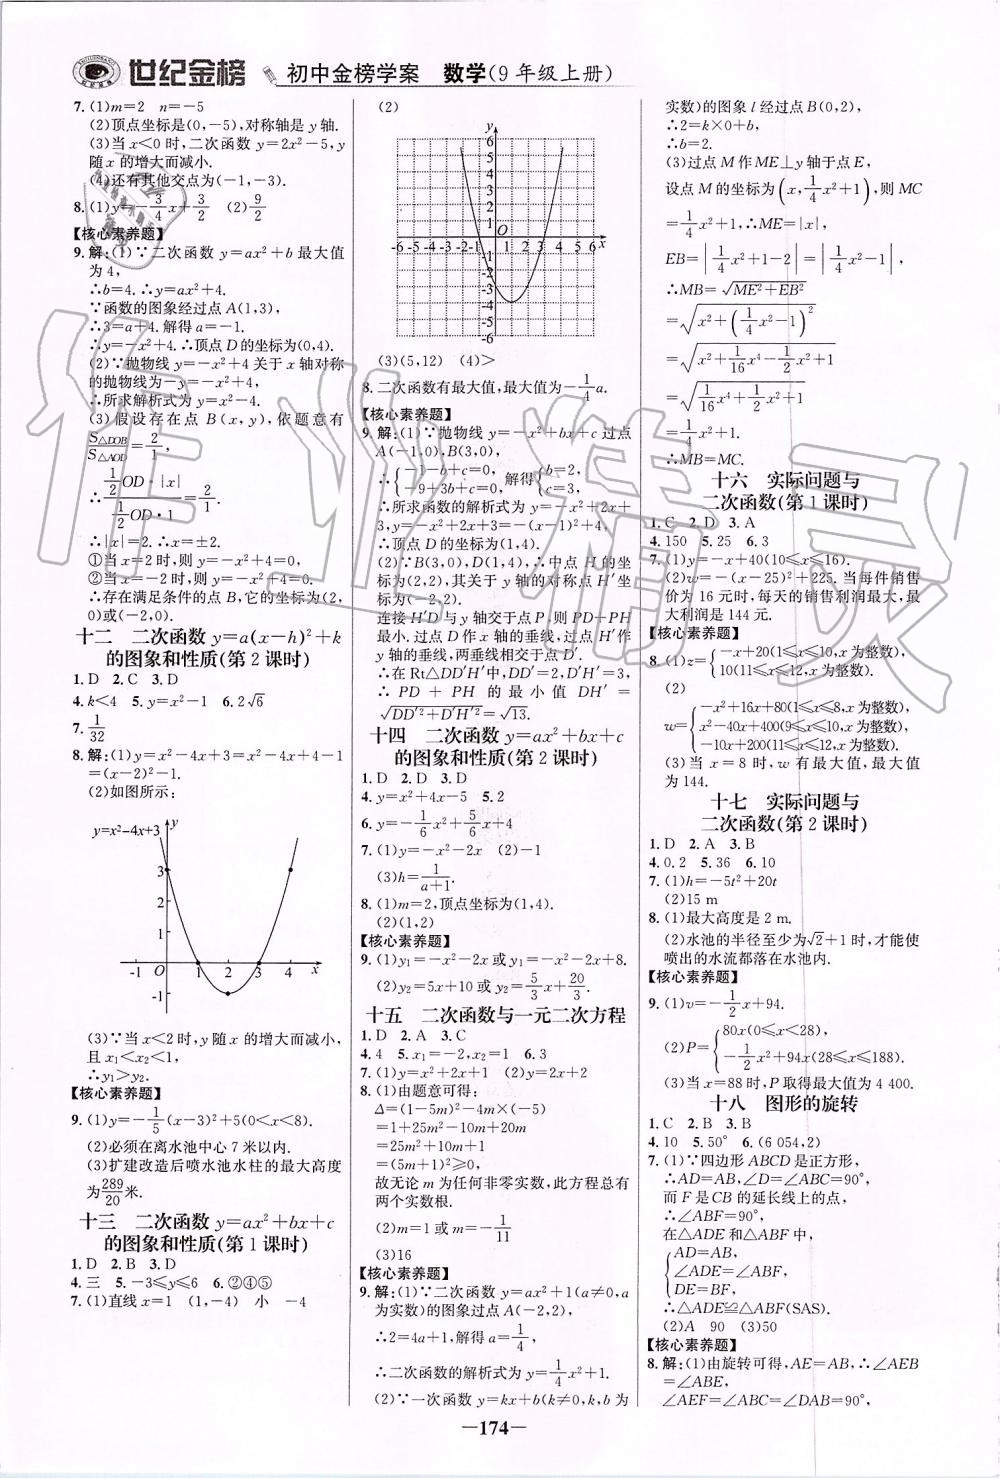 世纪金榜 初中金榜学案 数学(9年级上册)
7. (1)m=2 n=-5
(2)顶点坐标是(0,-5),对称轴是y轴.
(3)当x<0时,二次函数y=2x²-5,y
随x的增大而减小.
(4)还有其他交点为(-1,-3).
8. (1)y=-3/4x+3/2 (2)9/2
【核心素养题】
9. 解:(1)∵二次函数y=ax²+b最大值
为4,
∴b=4. ∴y=ax²+4.
∵函数的图象经过点A(1,3),
∴3=a+4. 解得a=-1.
∴y=-x²+4. ∴顶点D的坐标为(0,4).
(2)∵抛物线y=-x²+4关于x轴对称
的抛物线为-y=-x²+4,
∴所求解析式为y=x²-4.
(3)假设存在点B(x,y),依题意有
S△DOB/S△AOD=2/1,
∴(1/2OD·|x|)/(1/2OD·1)=2/1.
∴|x|=2. ∴x=±2.
①当x=2时,则y=-x²+4=0;
②当x=-2时,则y=-x²+4=0.
∴存在满足条件的点B,它的坐标为(2,
0)或(-2,0).
十二 二次函数y=a(x-h)²+k
的图象和性质(第2课时)
1. D 2. C 3. D
4. k<4 5. y=x²-1 6. 2√6
7. 1/32
8. 解:(1)y=x²-4x+3=x²-4x+4-1
=(x-2)²-1.
(2)如图所示:
y=x²-4x+3 y
3
-1 O 1 2 3 4 x
-1
(3)∵当x<2时,y随x的增大而减小,
且x₁<x₂<2,
∴y₁>y₂.
【核心素养题】
9. (1)y=-1/5(x-3)²+5(0<x<8).
(2)必须在离水池中心7米以内.
(3)扩建改造后喷水池水柱的最大高度
为289/20米.
十三 二次函数y=ax²+bx+c
的图象和性质(第1课时)
1. D 2. B 3. D
4. 三 5. -3≤y≤6 6. ②④⑤
7. (1)直线x=1 (1,-4) 小 -4
(2)
y
6
5
4
3
2
1
O
-6 -5 -4 -3 -2 -1 1 2 3 4 5 6 x
-1
-2
-3
-4
-5
-6
(3)(5,12) (4)>
8. 二次函数有最大值,最大值为-1/4a.
【核心素养题】
9. 解:(1)∵抛物线y=-x²+bx+c过点
A(-1,0),B(3,0),
∴{-1-b+c=0, -9+3b+c=0, 解得{b=2, c=3.
∴所求函数的解析式为y=-x²+2x+
3,y=-x²+2x+3=-(x-1)²+4,
∴顶点D的坐标为(1,4).
(2)∵B(3,0),D(1,4),∴中点H的坐
标为(2,2),其关于y轴的对称点H′坐
标为(-2,2),
连接H′D与y轴交于点P,则PD+PH
最小. 过点D作x轴的垂线,过点H′作
y轴的垂线,两垂线相交于点D′.
∴在Rt△DD′H′中,DD′=2,D′H′=3,
∴PD+PH的最小值DH′=
√DD′²+D′H′²=√13.
十四 二次函数y=ax²+bx+c
的图象和性质(第2课时)
1. D 2. D 3. D
4. y=x²+4x-5 5. 2
6. y=-1/6x²+5/6x+4
7. (1)y=-x²-2x (2)-1
(3)h=1/(a+1).
8. (1)m=2,顶点坐标为(1,4).
(2)(1,2)
【核心素养题】
9. (1)y₁=-x²-2x或y₁=-x²-2x+8.
(2)y₂=5x+10或y₂=5/3x+20/3.
十五 二次函数与一元二次方程
1. D 2. A 3. C
4. 4 5. x₁=-2,x₂=1 6. 3
7. (1)y=x²+2x+1 (2)y=2x+2
8. (1)由题意可得:
Δ=(1-5m)²-4m×(-5)
=1+25m²-10m+20m
=25m²+10m+1
=(5m+1)²≥0,
故无论m为任何非零实数,此方程总有
两个实数根.
(2)m=1或m=-1/11
(3)16
【核心素养题】
9. 解:(1)∵二次函数y=ax²+1(a≠0,a
为实数)的图象过点A(-2,2),
∴2=4a+1,解得a=1/4,
∴二次函数的解析式为y=1/4x²+1.
(2)∵一次函数y=kx+b(k≠0,k,b为
实数)的图象l经过点B(0,2),
∴2=k×0+b,
∴b=2.
(3)过点M作ME⊥y轴于点E,
设点M的坐标为(x,1/4x²+1),则MC
=1/4x²+1,∴ME=|x|,
EB=|1/4x²+1-2|=|1/4x²-1|,
∴MB=√ME²+EB²
=√x²+(1/4x²-1)²
=√x²+1/16x⁴-1/2x²+1
=√1/16x⁴+1/2x²+1
=1/4x²+1.
∴MB=MC.
十六 实际问题与
二次函数(第1课时)
1. C 2. D 3. A
4. 150 5. 25 6. 3
7. (1)y=-x+40(10≤x≤16).
(2)w=-(x-25)²+225. 当每件销售
价为16元时,每天的销售利润最大,最
大利润是144元.
【核心素养题】
8. (1)z={-x+20(1≤x≤8,x为整数), 10(11≤x≤12,x为整数).
(2)
w={-x²+16x+80(1≤x≤8,x为整数), x²-40x+400(9≤x≤10,x为整数), -10x+200(11≤x≤12,x为整数).
(3)当x=8时,w有最大值,最大值
为144.
十七 实际问题与
二次函数(第2课时)
1. D 2. A 3. B
4. 0.2 5. 36 6. 10
7. (1)h=-5t²+20t
(2)15 m
8. (1)最大高度是2 m.
(2)水池的半径至少为√2+1时,才能使
喷出的水流都落在水池内.
【核心素养题】
9. (1)v=-1/2x+94.
(2)P={80x(0≤x<28), -1/2x²+94x(28≤x≤188).
(3)当x=88时,P取得最大值为4 400.
十八 图形的旋转
1. C 2. B 3. B
4. 10 5. 50° 6. (6 054,2)
7. (1)∵四边形ABCD是正方形,
∴AD=AB,∠D=∠ABC=90°,
而F是CB的延长线上的点,
∴∠ABF=90°,
在△ADE和△ABF中,
{AD=AB, ∠ADE=∠ABF, DE=BF,
∴△ADE≌△ABF(SAS).
(2)A 90 (3)50
【核心素养题】
8. 解:(1)由旋转可得,AE=AB,∴∠AEB
=∠ABE,
∠AEF=∠ABC=∠DAB=90°,
—174—
作业精灵